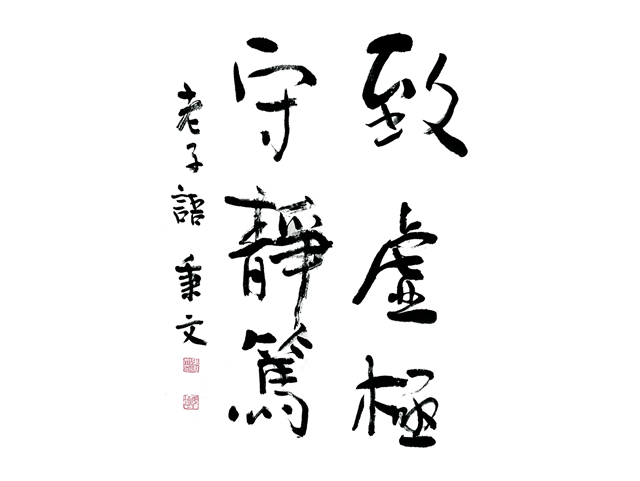 致虛極
守靜篤
老子語 秉文